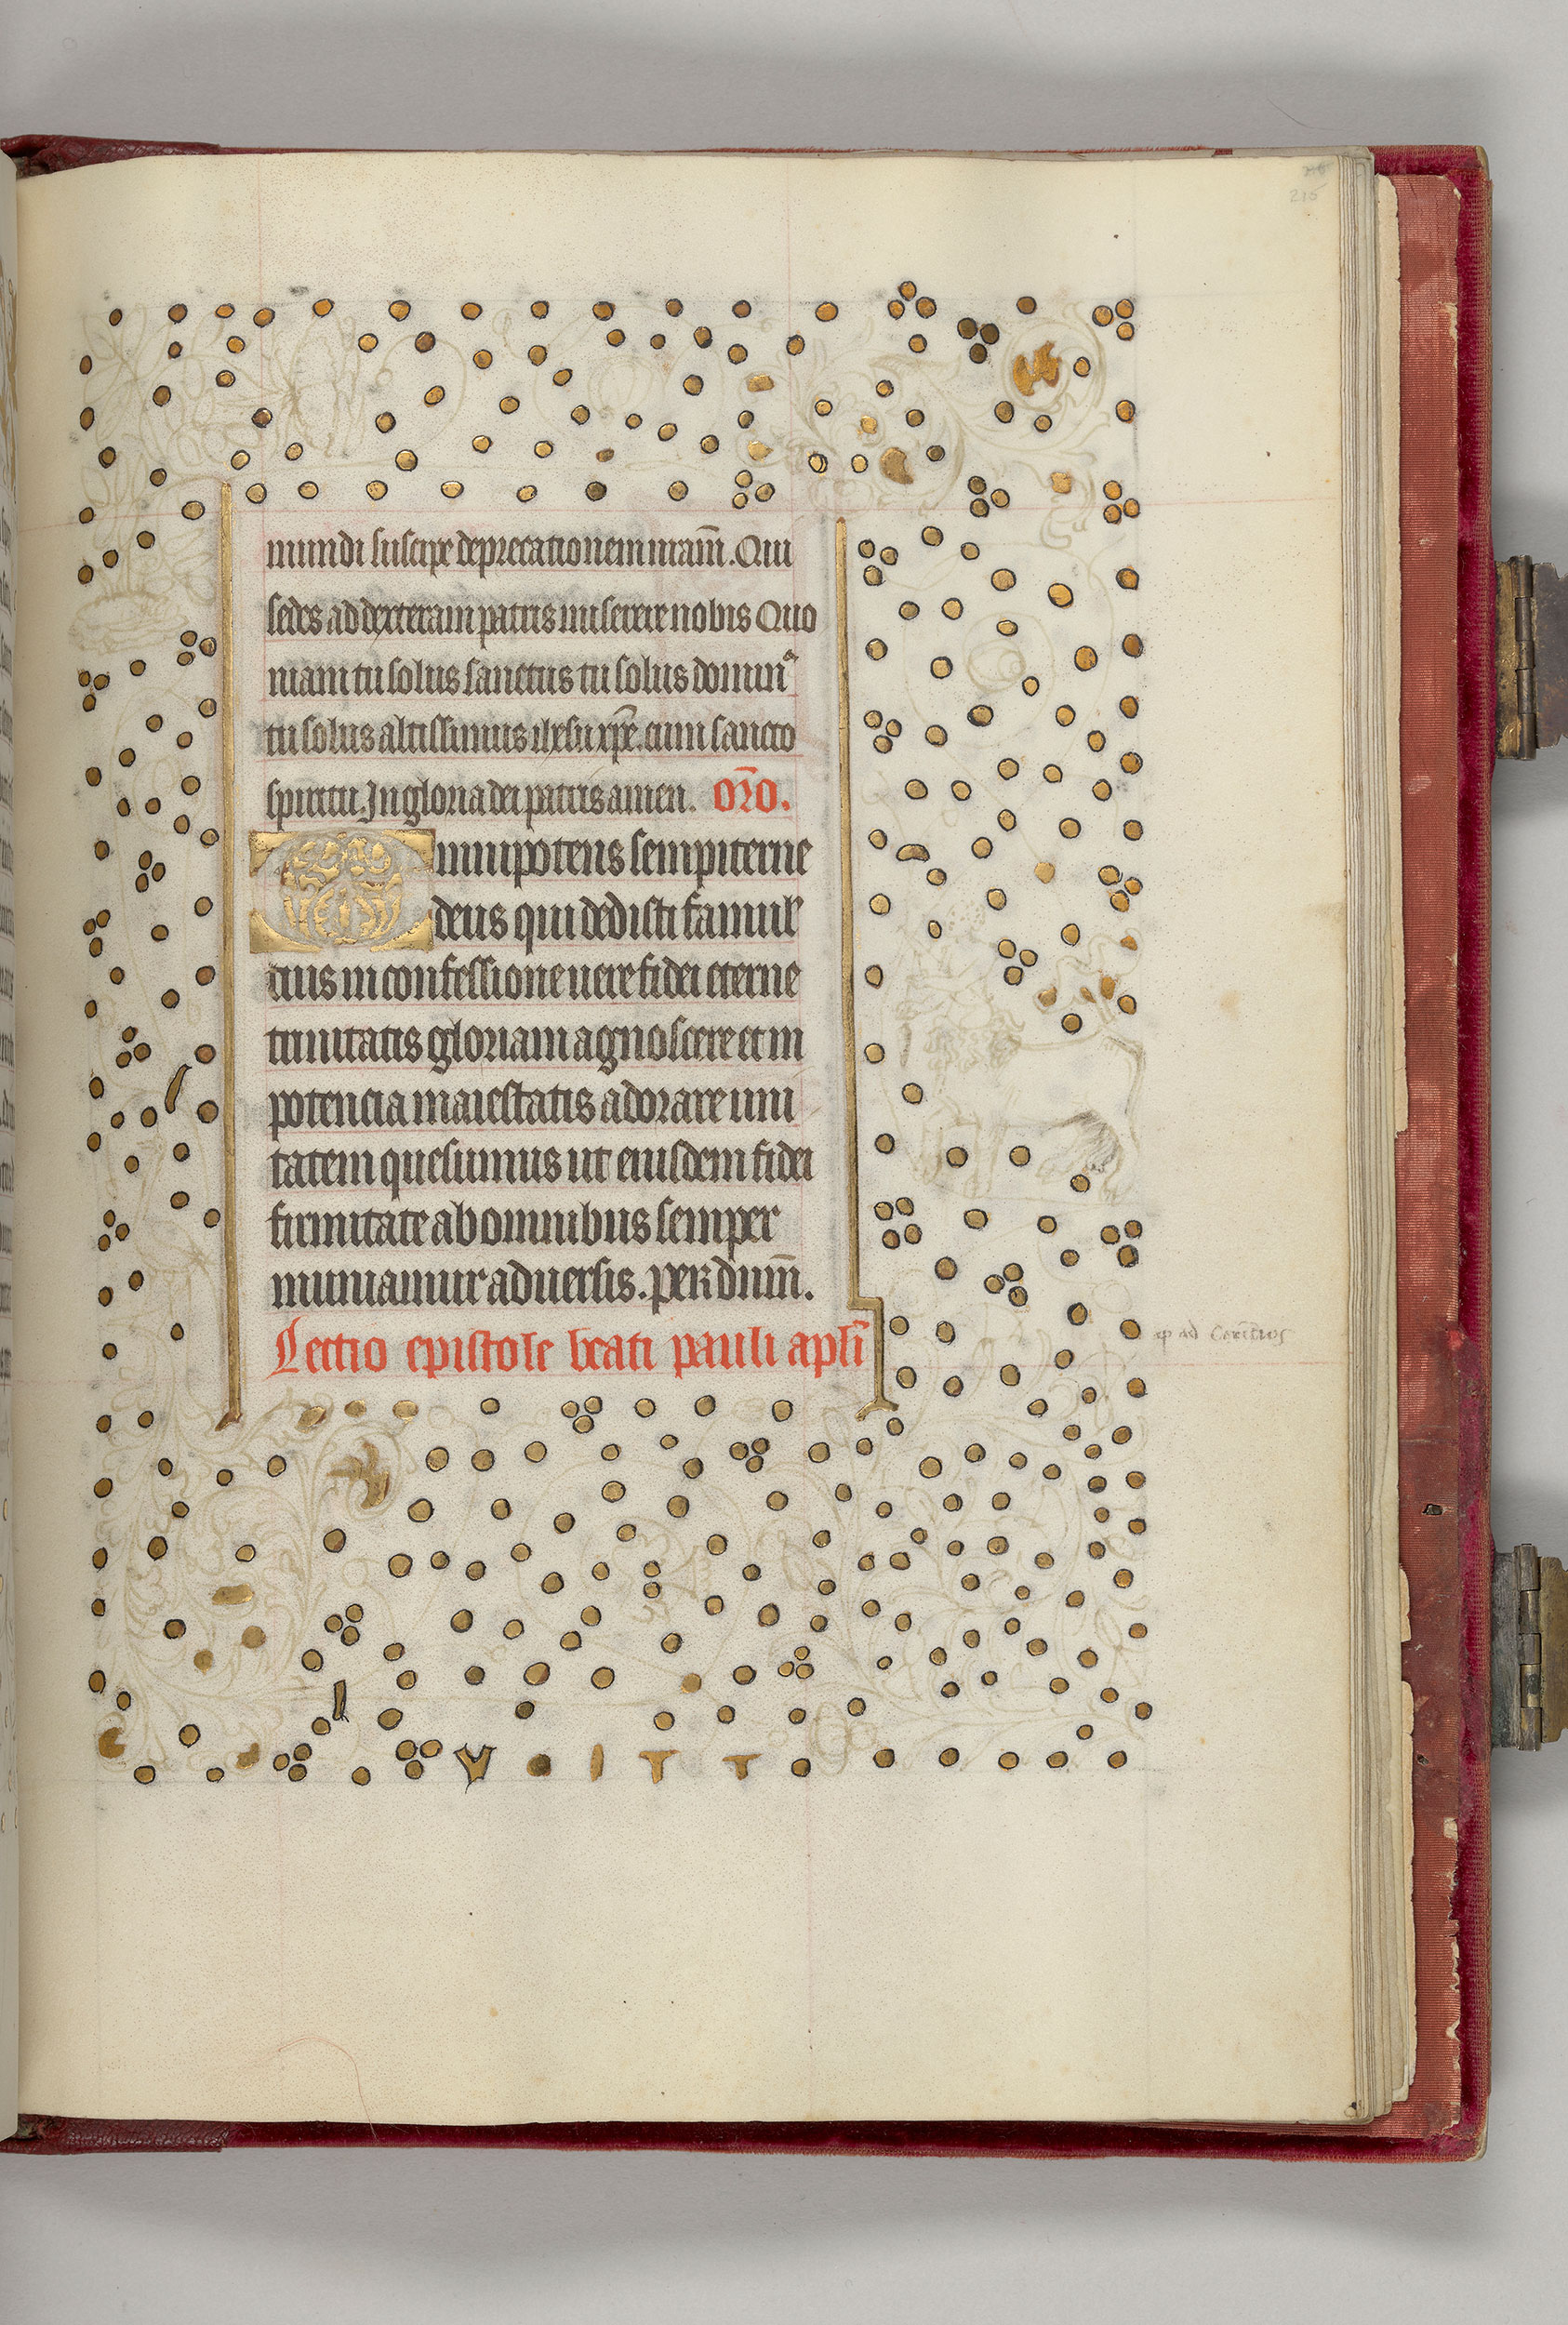 215
mundi suscipe deprecationem nr̄am̄. Qui
sedes ad dexteram patris miserere nobis Quo
niam tu solus sanctus tu solus domin⁹
tu solus altissimus ihesu xp̄e. cum sancto
spiritu. In gloria dei patris amen. or̄o.
Omnipotens sempiterne
deus qui dedisti famul'
tuis in confessione uere fidei eterne
trinitatis gloriam agnoscere et in
potencia maiestatis adorare uni
tatem quesumus ut eiusdem fidei
firmitate ab omnibus semper
muniamur aduersis. per dnm̄.
Lectio epistole beati pauli apl̄i
ad